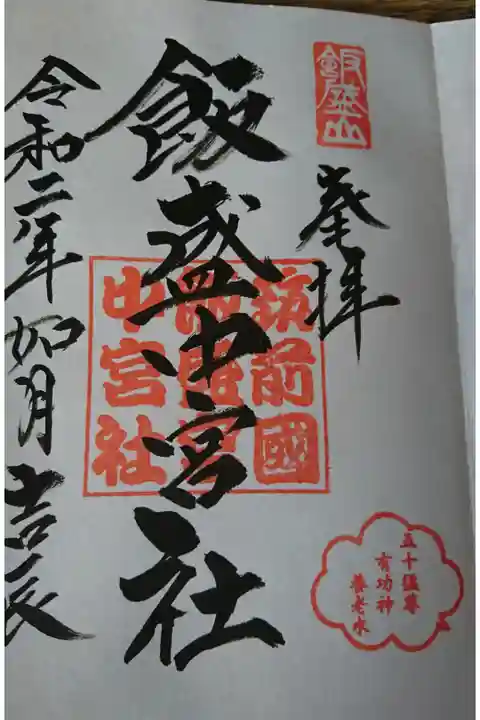 飯盛山
奉拝
飯盛中宮社
筑前國
飯盛
中宮社
令和二年如月吉辰
五十猛尊
有功神
養老水